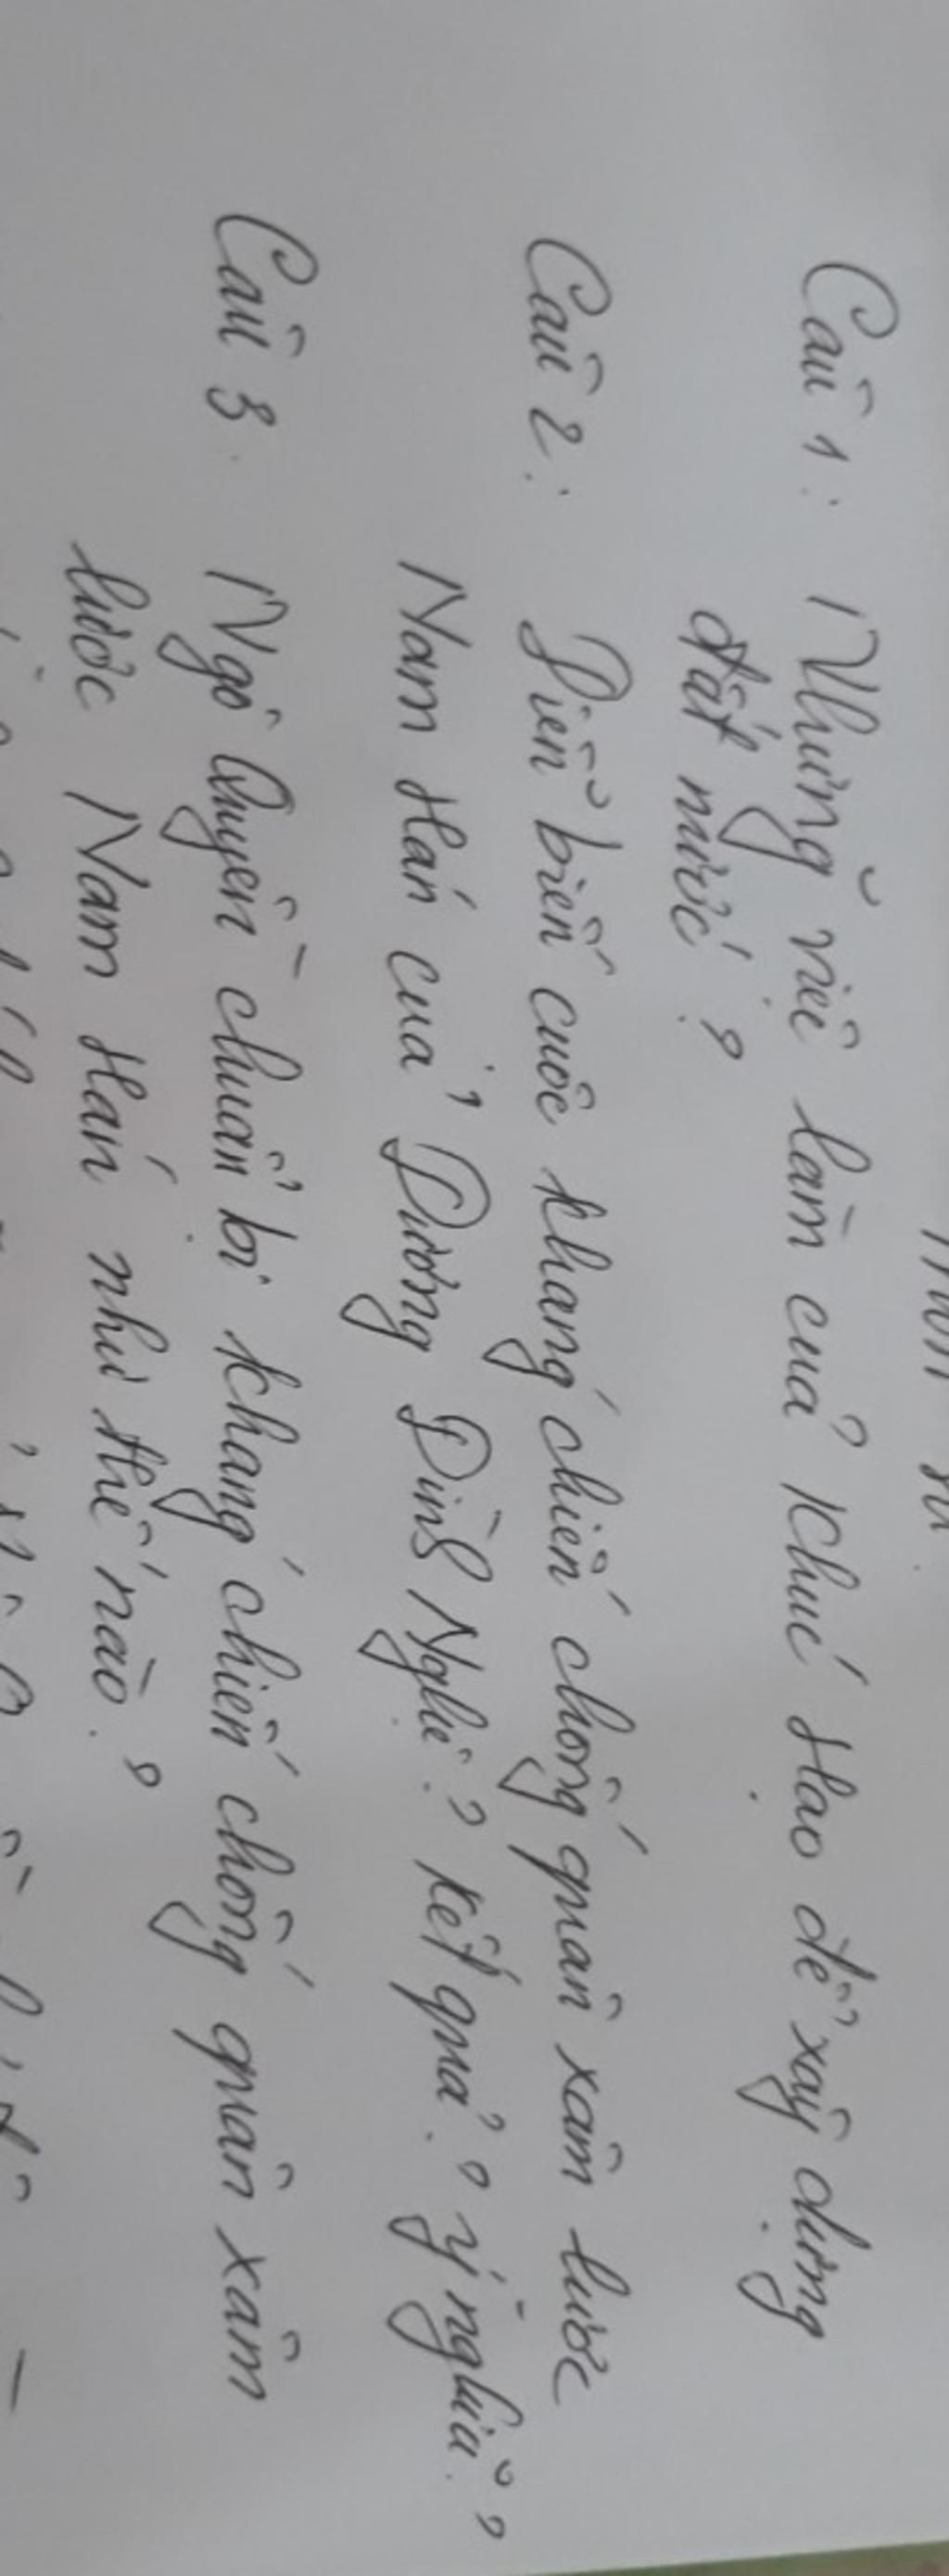 Câu 1: Những việc làm của Khúc Hạo để xây dựng
đất nước?
Câu 2: Diễn biến cuộc kháng chiến chống quân xâm lược
Nam Hán của Dương Đình Nghệ? Kết quả? ý nghĩa?
Câu 3. Ngô Quyền chuẩn bị kháng chiến chống quân xâm
lược Nam Hán như thế nào?